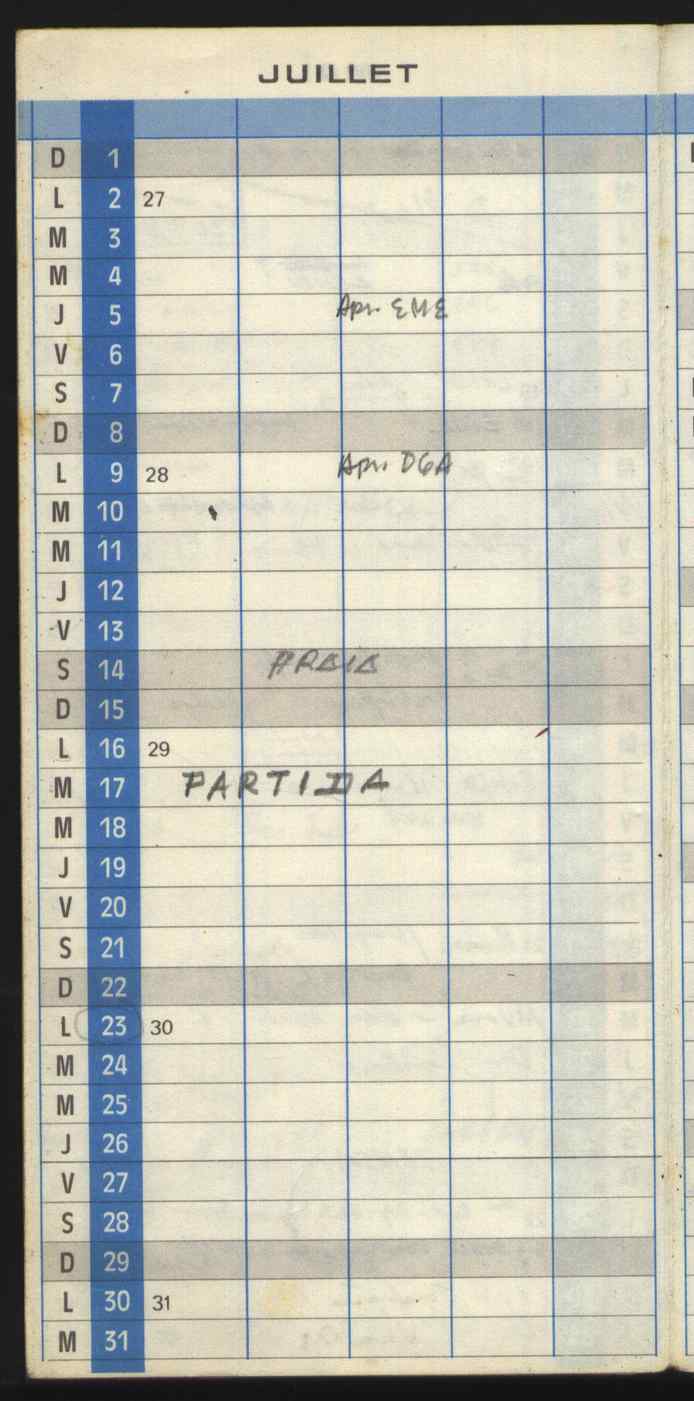 JUILLET
D 1
L 2 27
M 3
M 4
J 5 Apr. EME
V 6
S 7
D 8
L 9 28 Apr. DGA
M 10
M 11
J 12
V 13
S 14 PRAIA
D 15
L 16 29
M 17 PARTIDA
M 18
J 19
V 20
S 21
D 22
L 23 30
M 24
M 25
J 26
V 27
S 28
D 29
L 30 31
M 31